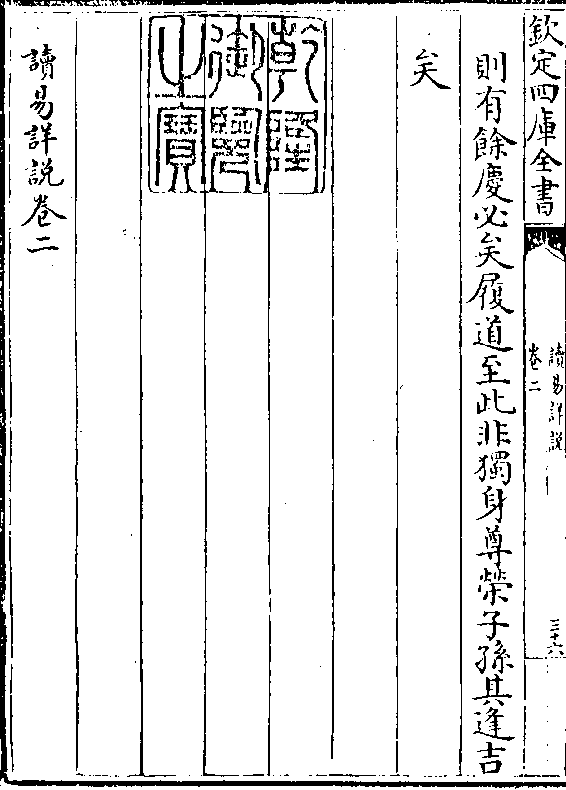 欽定四庫全書
讀易詳說
卷二
三十六
則有餘慶必矣履道至此非獨身尊榮子孫其逢吉
矣
乾隆
御覽
之寶
讀易詳說卷二